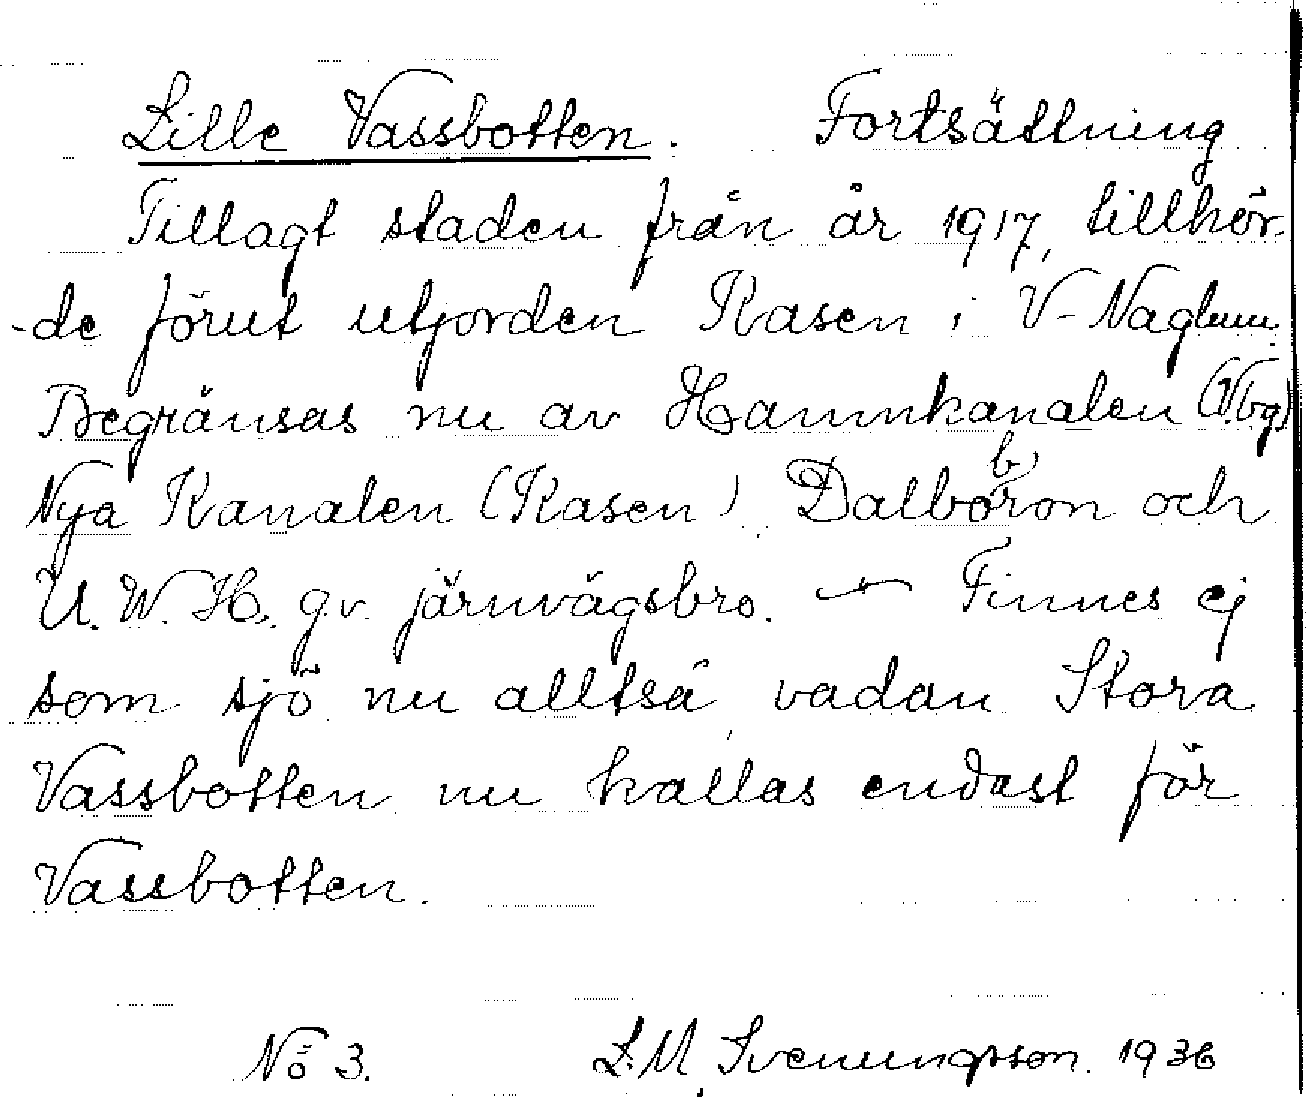 Lille Vassbotten. Fortsättning
Tillagt staden från år 1917, tillhör-
-de förut utjorden Rasen i V-Naglum.
Begränsas nu av Hamnkanalen (Vbg)
Nya Kanalen (Kasen), Dalbobron och
U.W.H. gv. järnvägsbro. — Finnes ej
som sjö nu alltså, vadan Stora
Vassbotten nu kallas endast för
Vassbotten.
No 3. L.M. Svenungsson. 1936